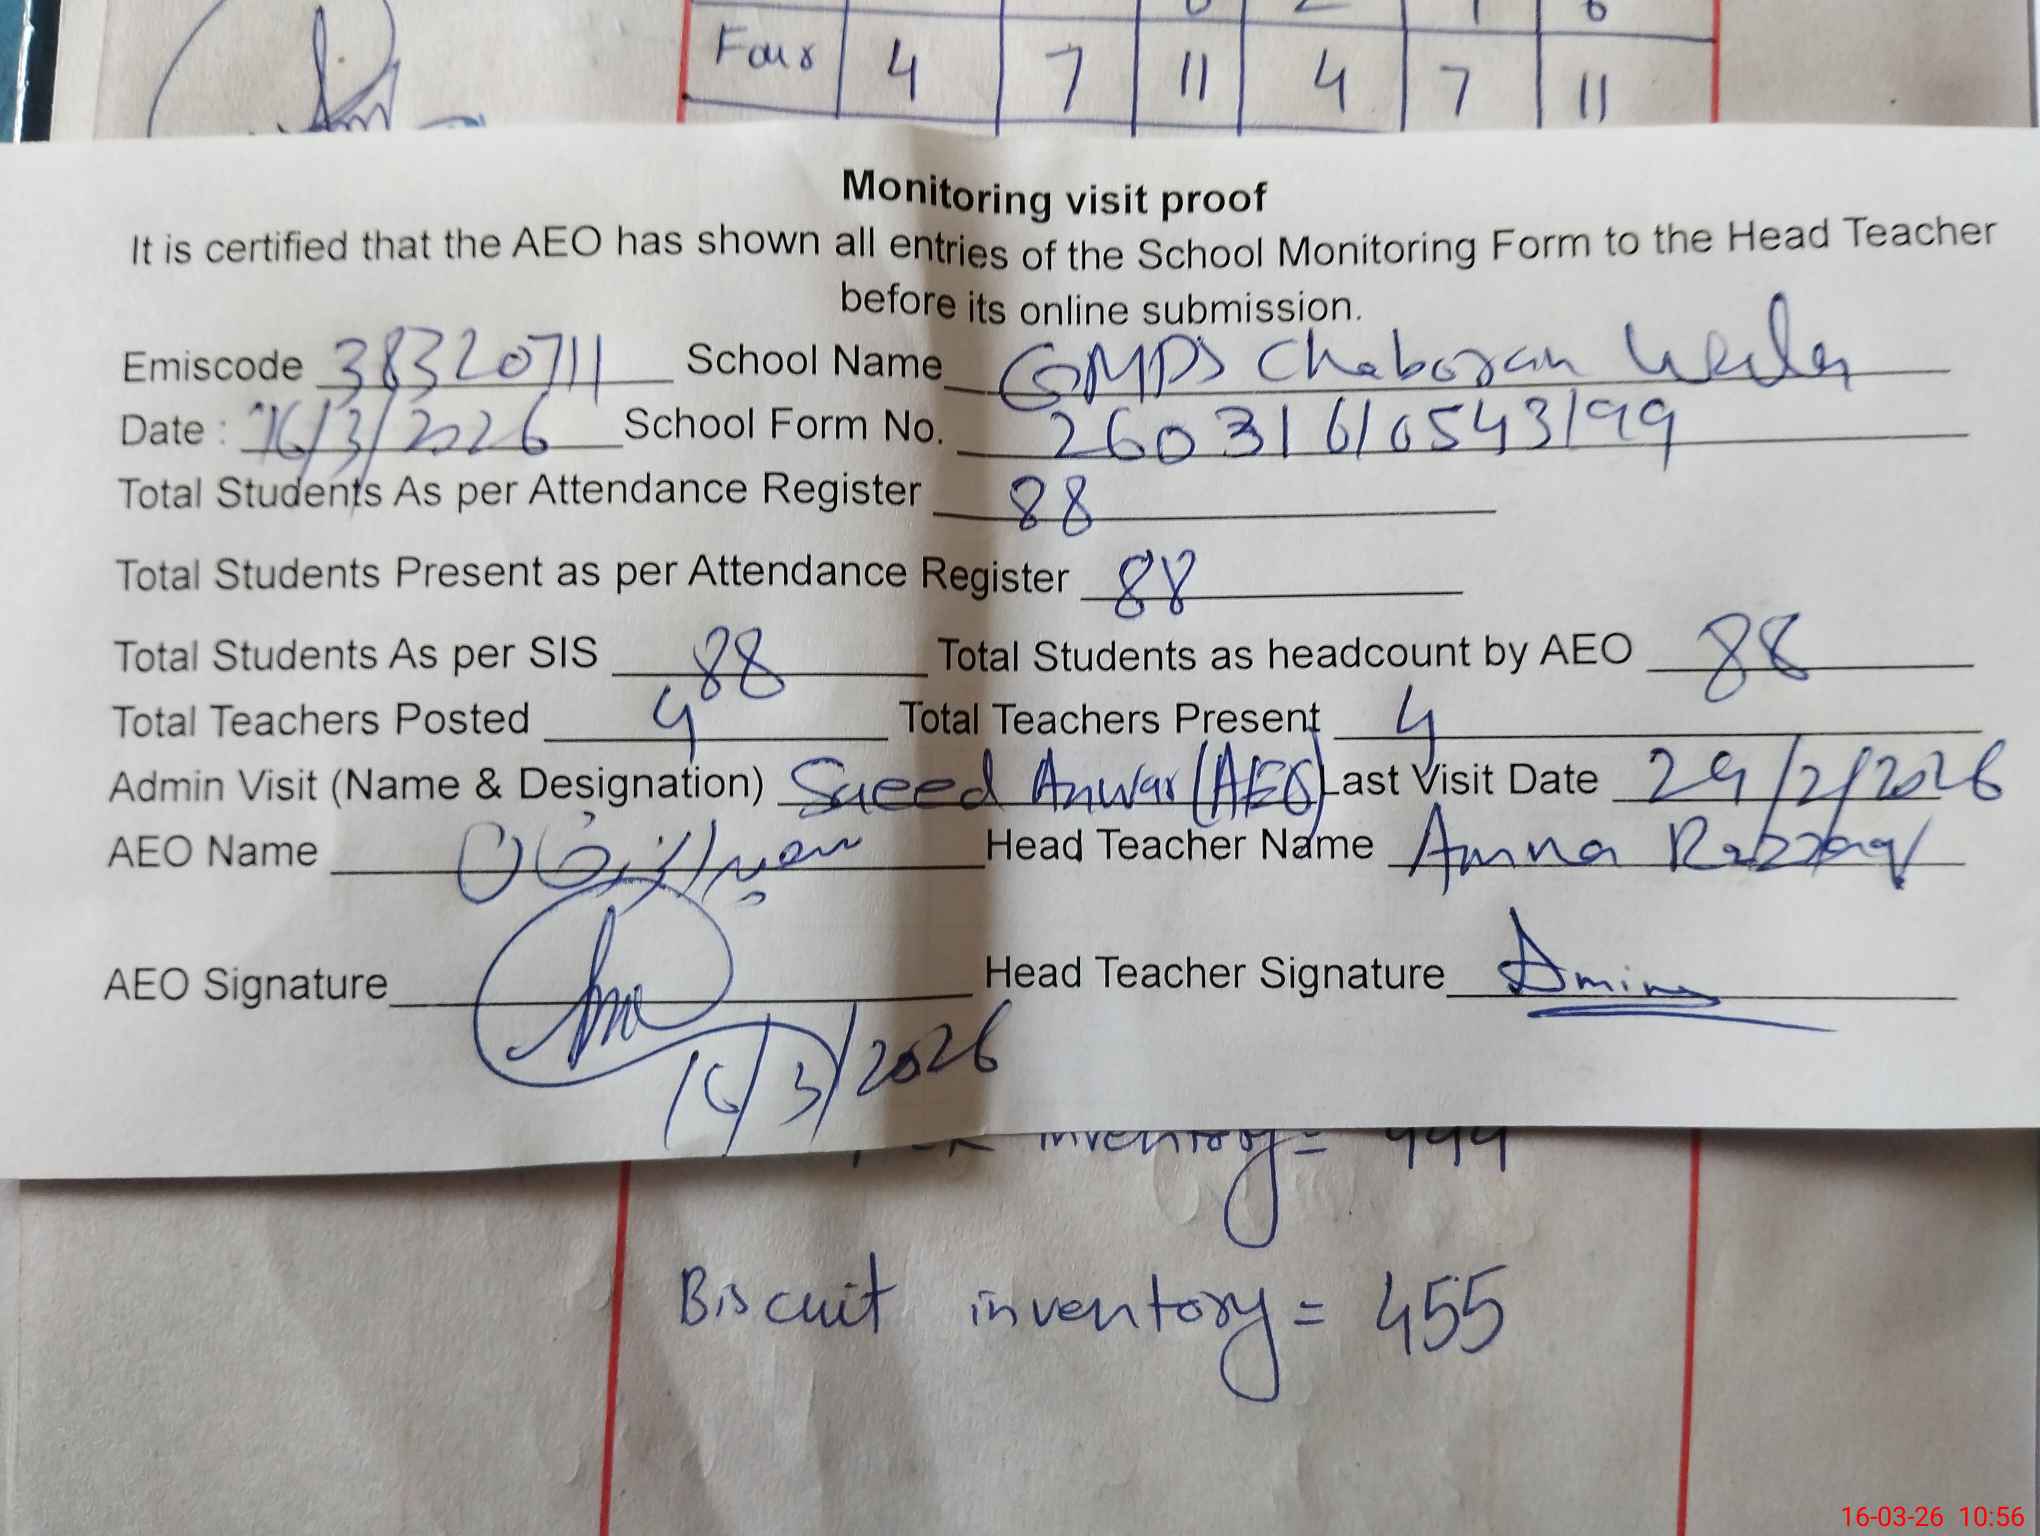 Four 4 7 11 4 7 11
Monitoring visit proof
It is certified that the AEO has shown all entries of the School Monitoring Form to the Head Teacher
before its online submission.
Emiscode 38320711 School Name GMPS Chaboran
Date : 16/3/2026 School Form No. 26031610543199
Total Students As per Attendance Register 88
Total Students Present as per Attendance Register 88
Total Students As per SIS 88 Total Students as headcount by AEO 88
Total Teachers Posted 4 Total Teachers Present 4
Admin Visit (Name & Designation) Saeed Anwar (AEO) Last Visit Date 24/2/2026
AEO Name Head Teacher Name Amna Razzaq
AEO Signature Head Teacher Signature Amina
16/3/2026
inventory = 444
Biscuit inventory = 455
16-03-26 10:56